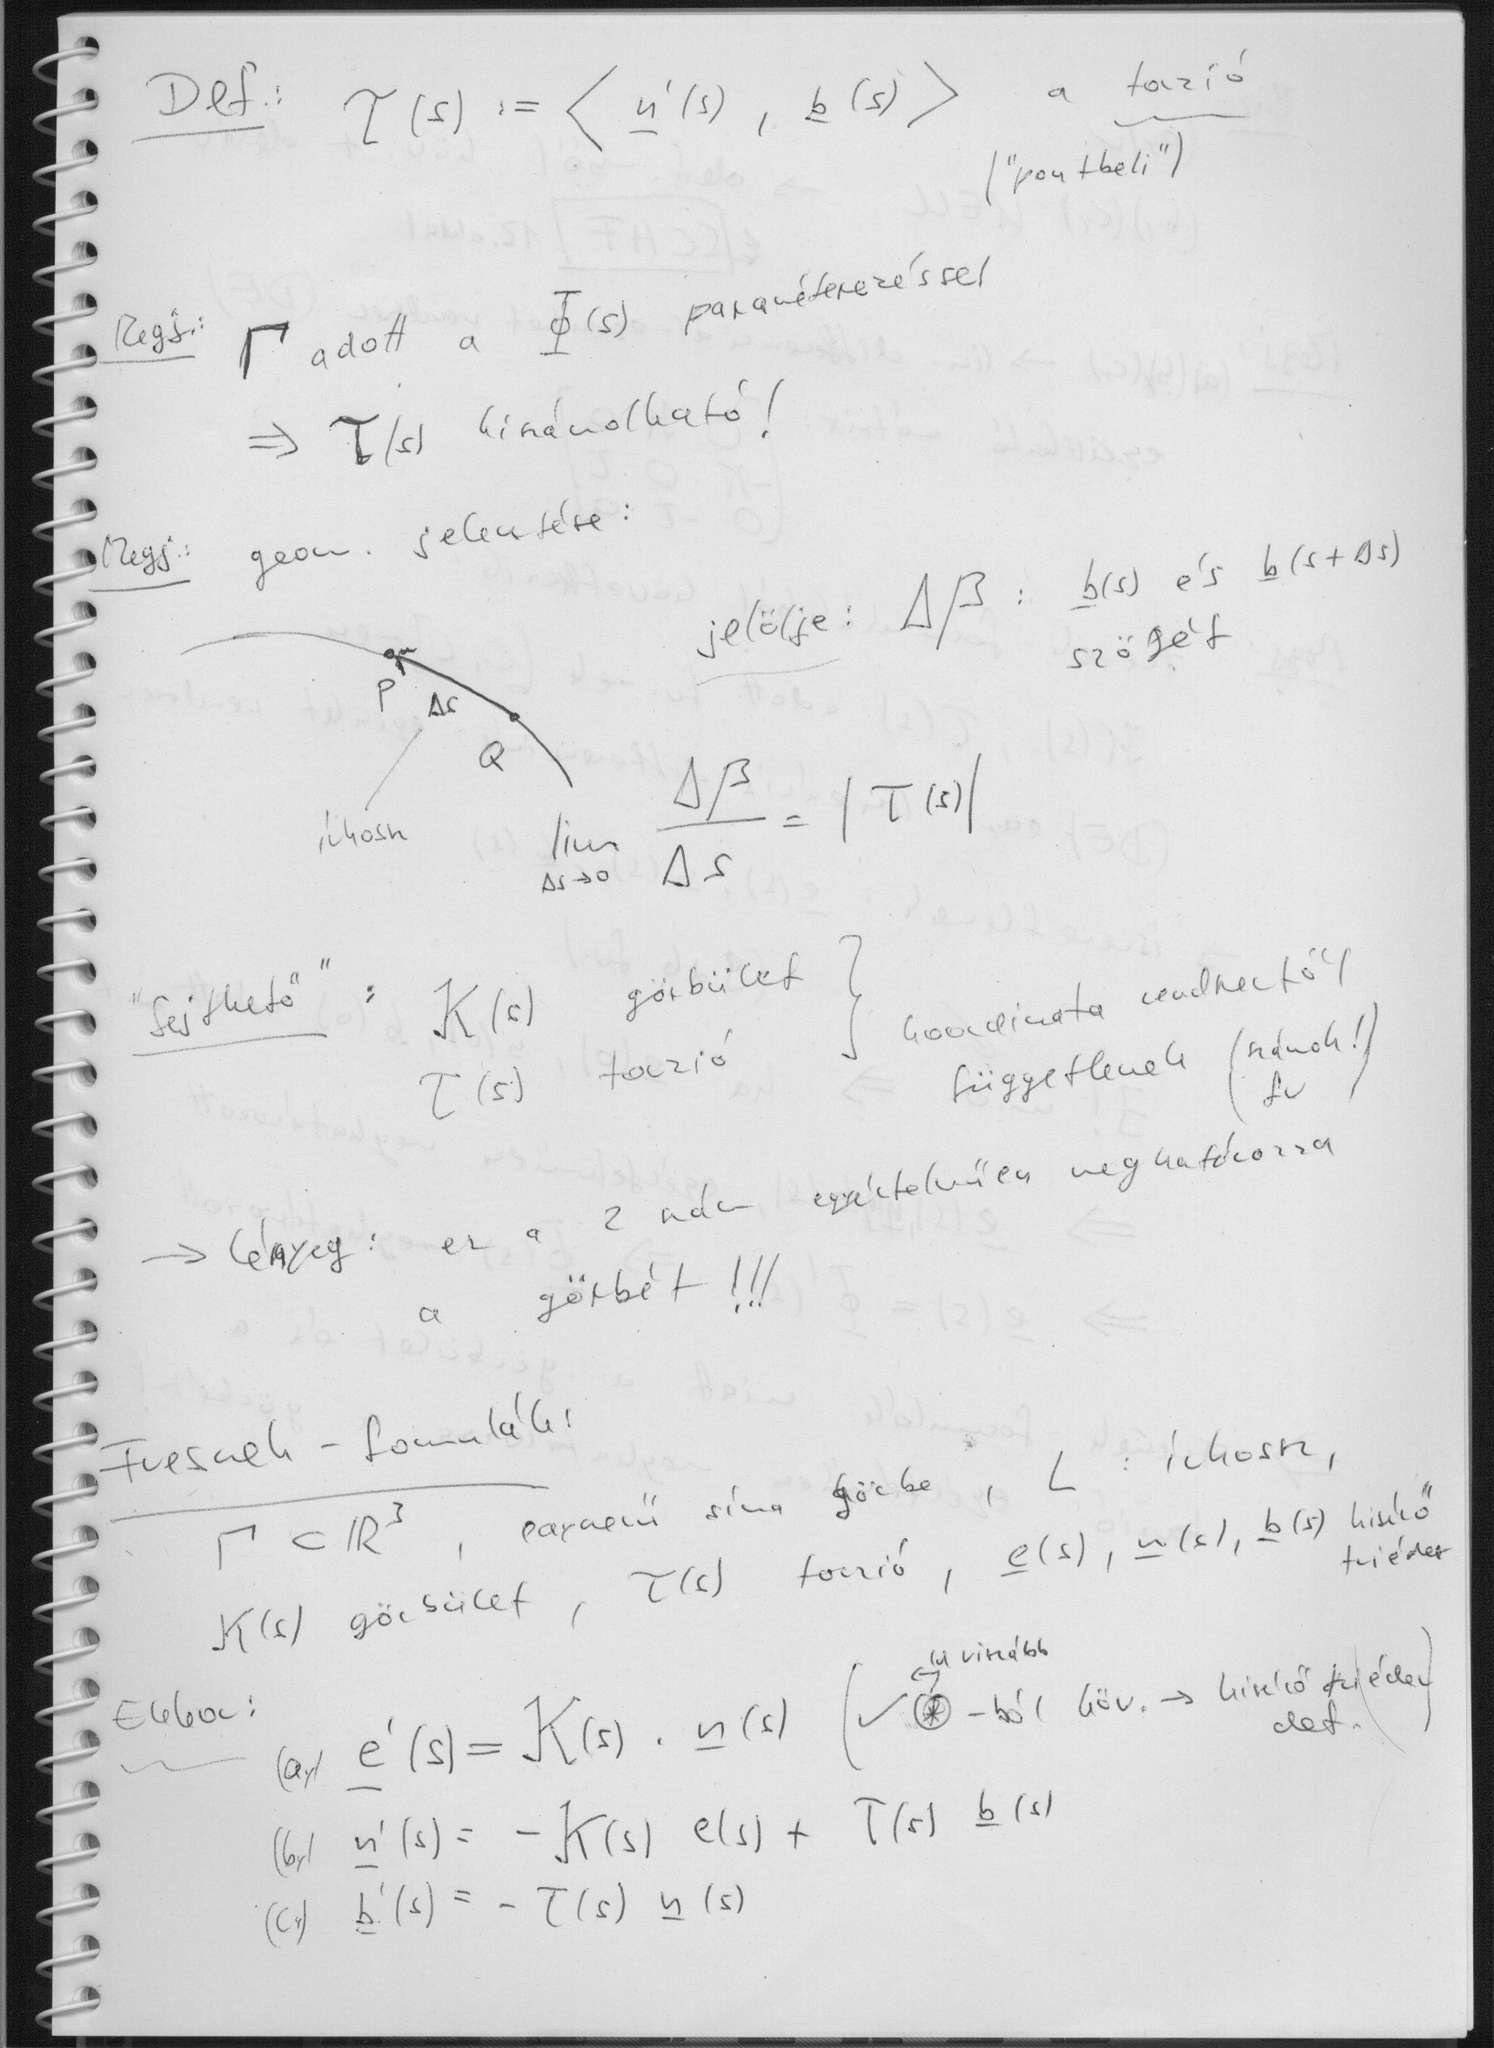 Def.: τ(s) := ⟨ n'(s) , b(s) ⟩ a torzió
("pontbeli")
Megj.: Γ adott a Φ(s) paraméterezéssel
⇒ τ(s) kiszámolható!
Megj.: geom. jelentése:
jelölje: Δβ : b(s) és b(s+Δs)
szögét
P
Δs
Q
ívhossz
lim Δs→0 Δβ/Δs = |τ(s)|
"Sejthető" : K(s) görbület
τ(s) torzió
koordináta rendszertől
függetlenek (számok!)
fv
→ lényeg: ez a 2 adat egyértelműen meghatározza
a görbét!!!
Fresnek - formulák:
Γ ⊂ ℝ³, egyszerű sima görbe, L : ívhossz,
K(s) görbület, τ(s) torzió, e(s), n(s), b(s) kísérő
triéder
Ekkor:
(a,) e'(s) = K(s) · n(s) (✓ ⊛ -ból köv. → kísérő triéder
def.)
(b,) n'(s) = -K(s) e(s) + τ(s) b(s)
(c,) b'(s) = - τ(s) n(s)